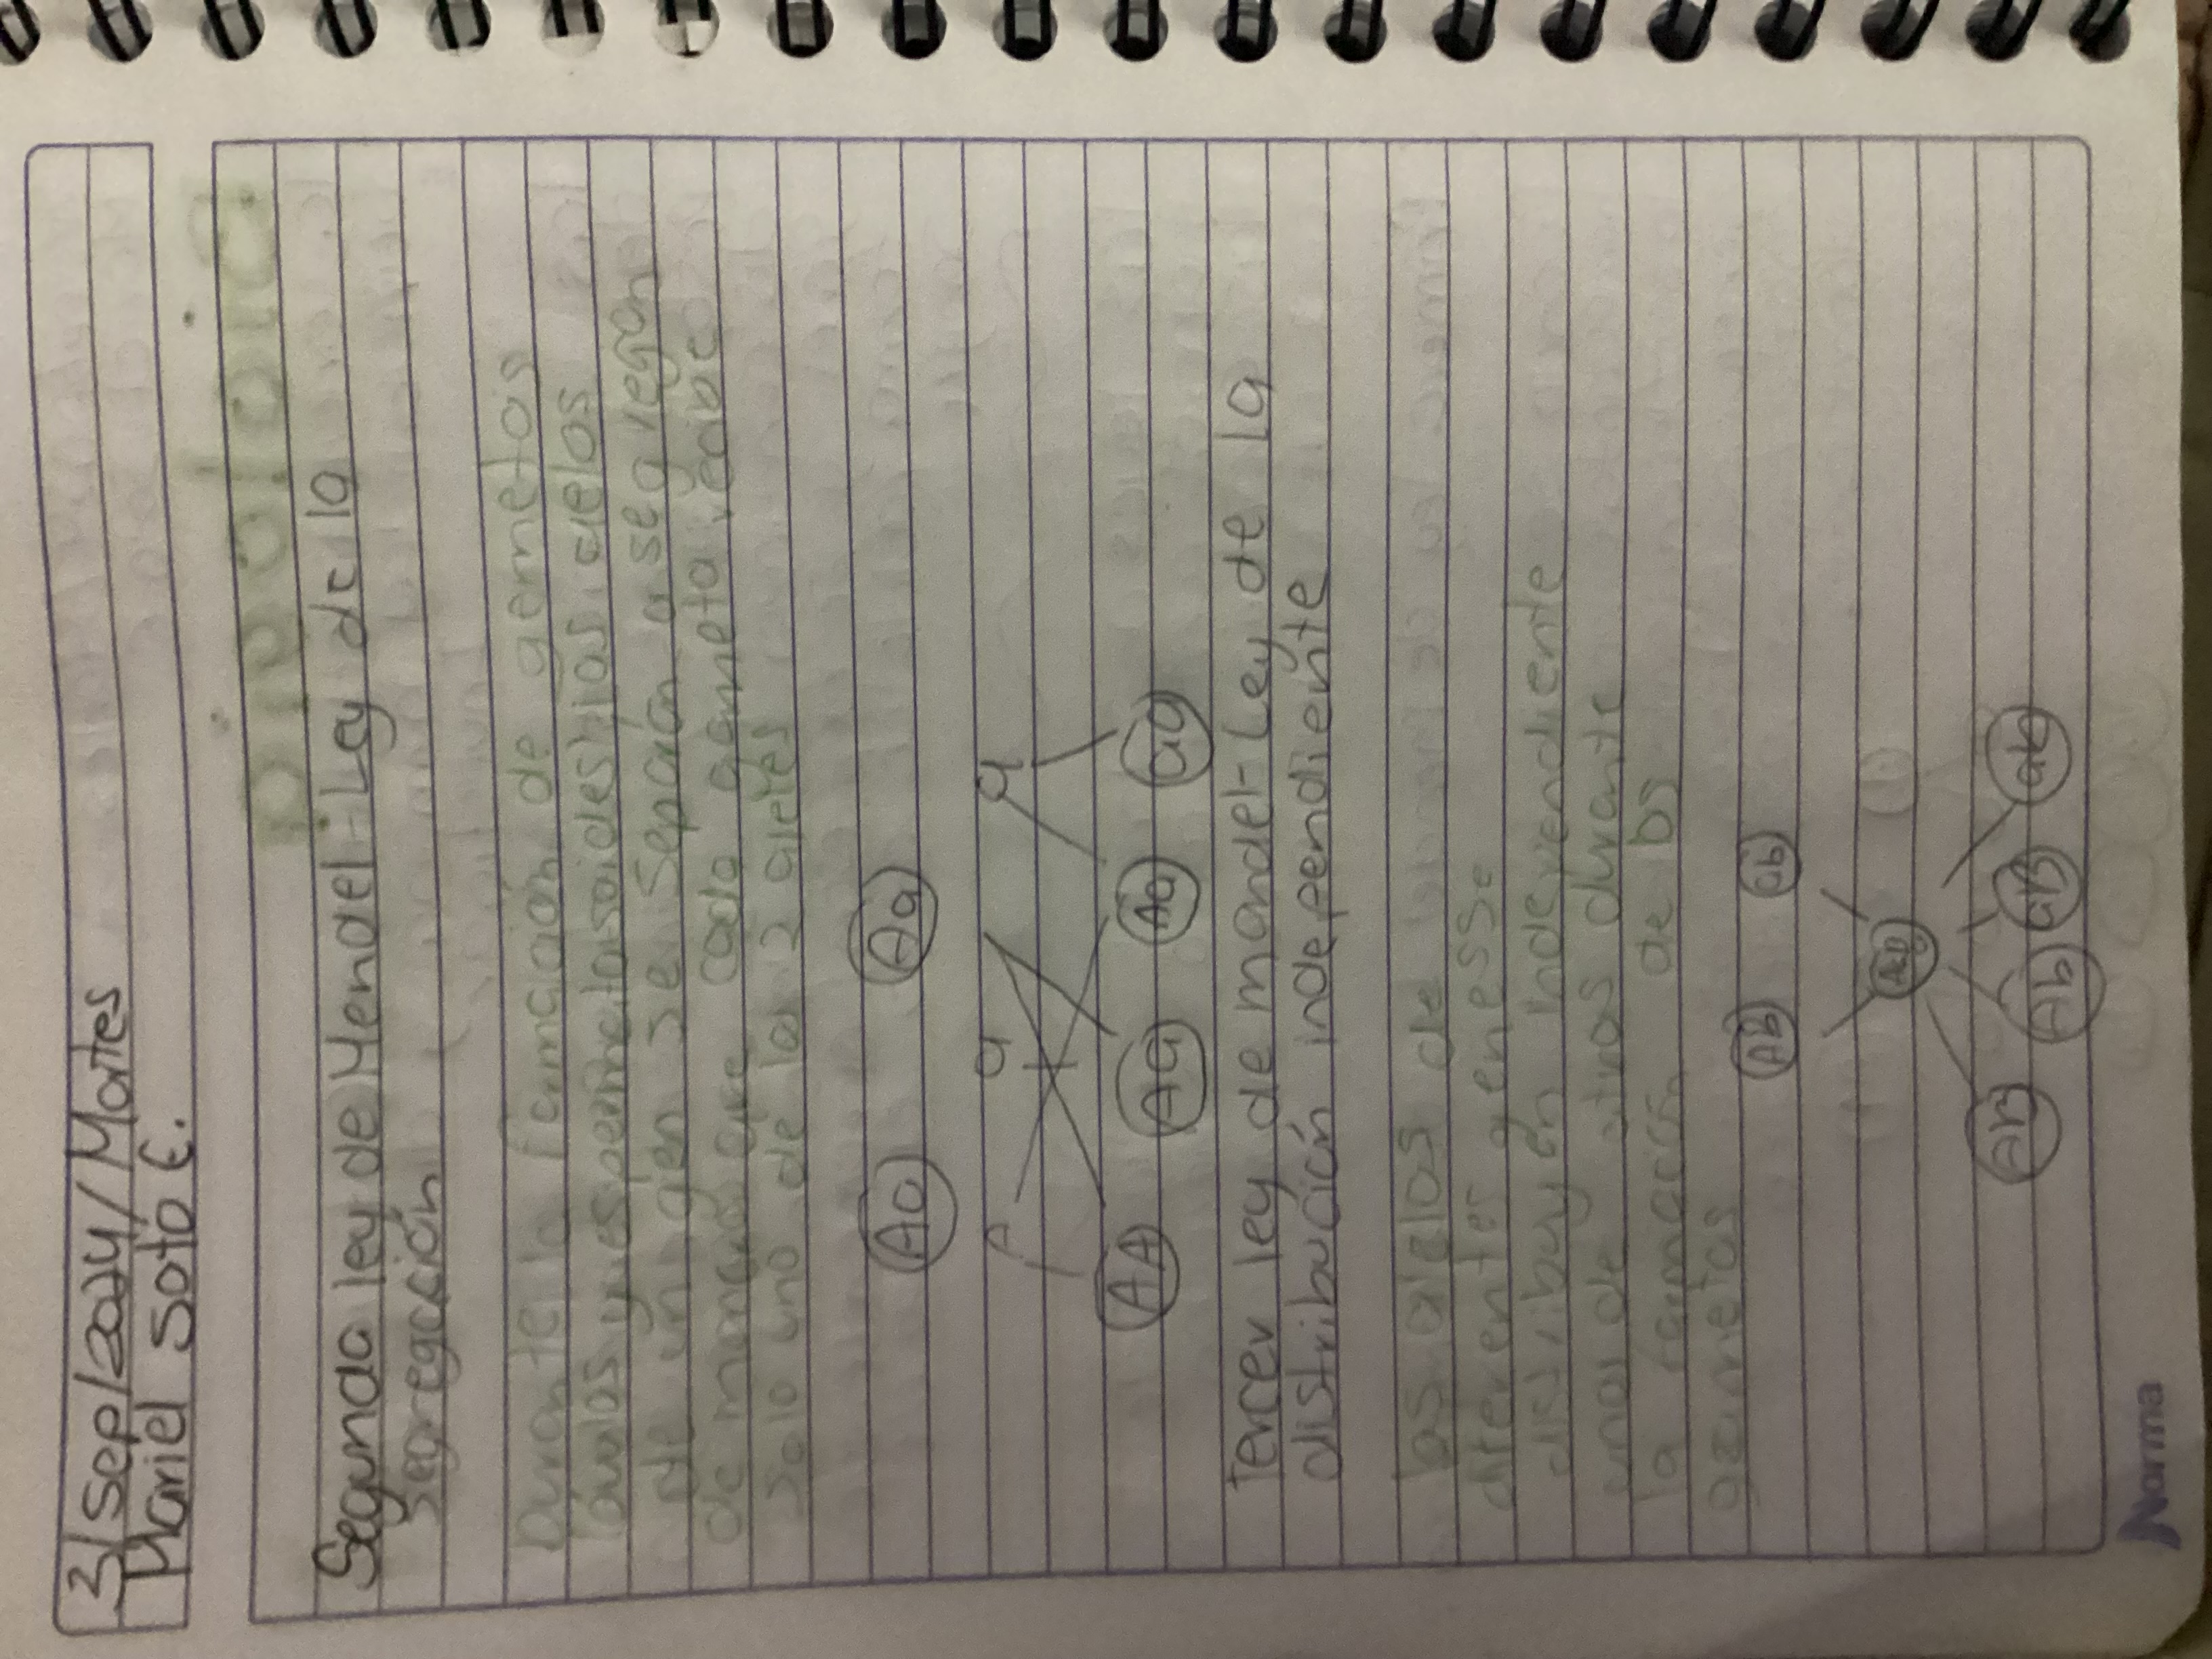 3/sep/2024/Martes
Mariel Soto E.
Segunda ley de Mendel-Ley de la
segregación
Durante la formación de gametos
de un gen se separan o segregan
de manera que cada gameta recibe
solo uno de los 2 alelos
Aa Aa
a a
AA Aa Aa aa
Tercer ley de mandel-Ley de la
distribución independiente
los alelos de
diferentes genesse
distribuyen independiente
unos de otros durante
la formación de los
gametos
Ab ab
AB Ab aB ab
Norma